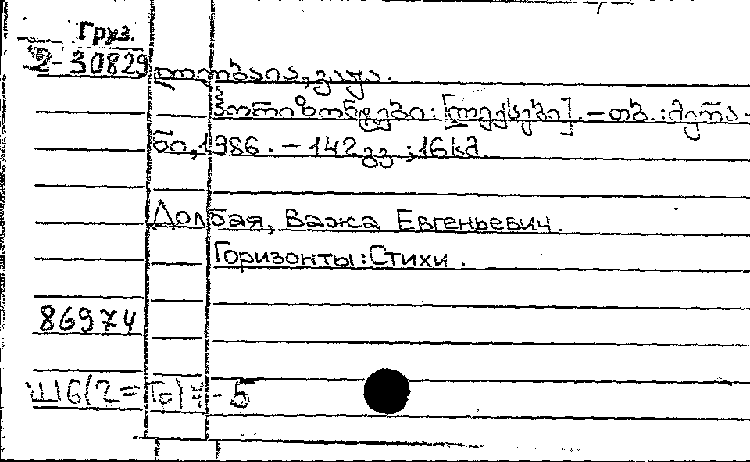 Груз.
2-30829
დოლბაია, ვაჟა.
ჰორიზონტები: [ლექსები]. – თბ. : მერა-
ნი, 1986. – 142 გვ ; 16 სმ
Долбая, Важа Евгеньевич.
Горизонты: Стихи.
86974
Ш6(2=Го)7-5